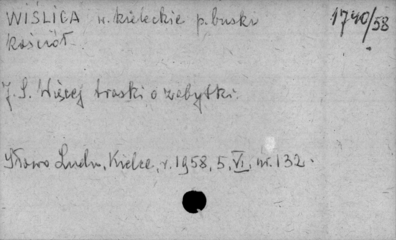 WIŚLICA w. kieleckie p. buski 1740/58
Kościół.
J. S. Więcej troski o zabytki.
Słowo Ludu, Kielce, r. 1958, 5, VI, nr. 132.